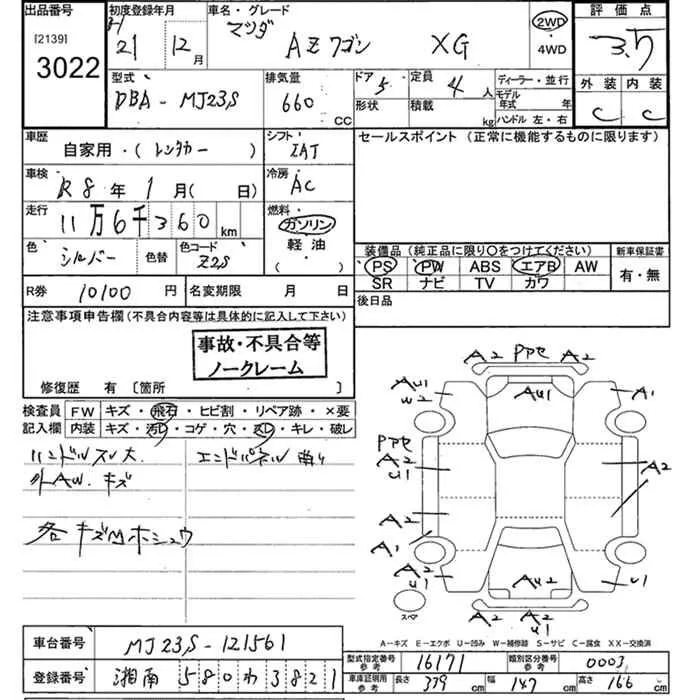 出品番号
[2139]
3022
初度登録年月
H
21 12月
車名・グレード
マツダ
AZワゴン XG
2WD
・
4WD
評価点
3.5
外装 内装
C C
型式
DBA-MJ23S
排気量
660
CC
ドア 5
形状
定員 4人
積載 kg
ディーラー・並行
モデル年式 年
ハンドル 左・右
車歴
自家用・(レンタカー)
シフト
IAT
セールスポイント (正常に機能するものに限ります)
車検
R8年1月(日)
冷房
AC
走行
11万6千360km
燃料
ガソリン
軽油
(・)
色
シルバー
色替
色コード
Z2S
装備品(純正品に限り○をつけてください)
PS PW ABS エアB AW
SR ナビ TV カワ
新車保証書
有・無
R券 10100円
名変期限 月 日
後日品
注意事項申告欄(不具合内容等は具体的に記入して下さい)
事故・不具合等
ノークレーム
修復歴 有〔箇所 〕
検査員
記入欄
FW キズ・飛石・ヒビ割・リペア跡・×要
内装 キズ・汚レ・コゲ・穴・スレ・キレ・破レ
ハンドルスレ大. エンドパネル曲り
外AW.キズ
各キズMホシュウ
A2 PPセ A2
AU1
W2
AU1
A1
PPセ
A2
U1
A2
A2
A1
A2
U1
AU2
U1
A2
A2
U1
スペア
A-キズ E-エクボ U-凹み W-補修跡 S-サビ C-腐食 XX-交換済
車台番号 MJ23S-121561
登録番号 湘南 580 わ 3821
型式指定番号
参考
16171
類別区分番号
参考
0003
車庫証明用
参考
長さ 339cm 幅 147cm 高さ 166cm